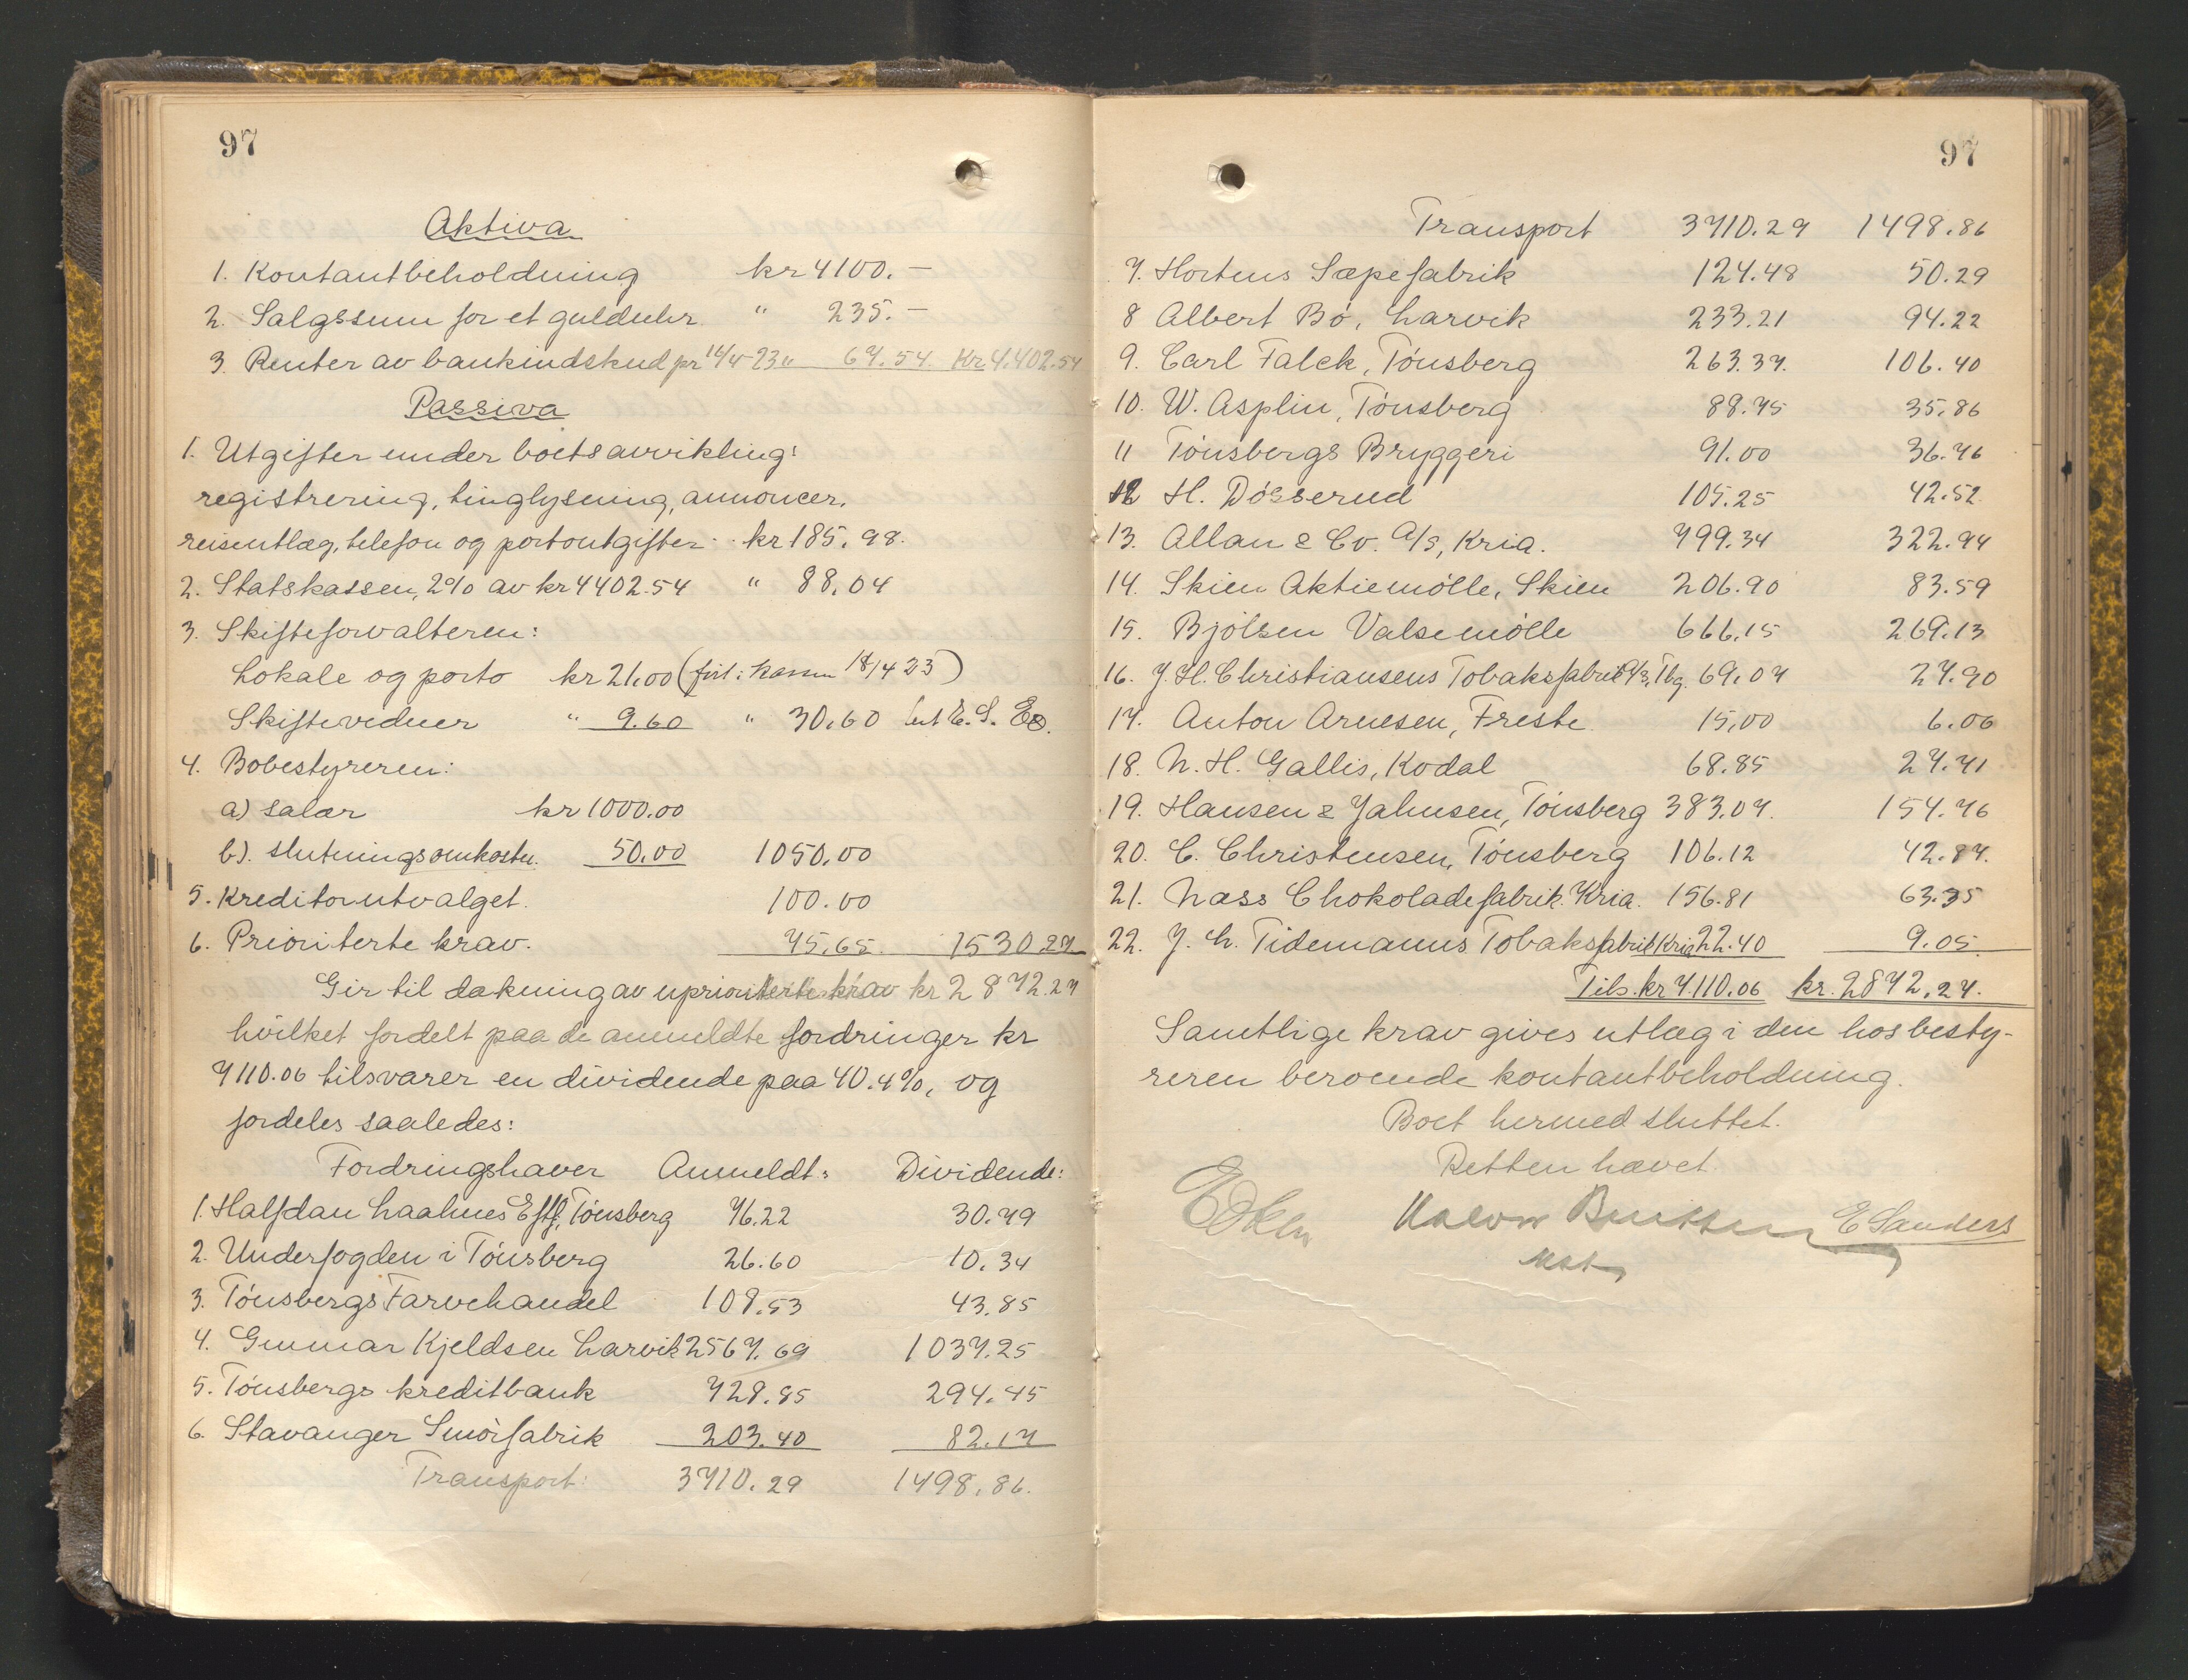 97
Aktiva
1. Kontantbeholdning kr 4100.—
2. Salgssum for et guldruhr " 235.—
3. Renter av bankindskud pr 14/4-23 " 67.54 Kr 4.402.54
Passiva
1. Utgifter under boets avvikling:
registrering, tinglysning, annoncer,
reiseutlæg, telefon og portoutgifter kr 185.98.
2. Statskassen, 2% av kr 4402.54 " 88.04
3. Skifteforvalteren:
Lokale og porto kr 21.00 ( 18/4 23)
Skiftevidner " 9.60 " 30.60
4. Bobestyreren:
a) salær kr 1000.00
b). slutningsomkostn. 50.00 1050.00
5. Kreditorutvalget. 100.00
6. Prioriterte krav. 75.65. 1530.27
Gir til dækning av uprioriterte krav kr 2872.27
hvilket fordelt paa de anmeldte fordringer kr
7110.06 tilsvarer en dividende paa 40.4%, og
fordeles saaledes:
Fordringshaver Anmeldt: Dividende:
1. Halfdan Laahnes Eftf, Tönsberg 76.22 30.79
2. Underfogden i Tönsberg 26.60 10.34
3. Tönsbergs Farvehandel 108.53 43.85
4. Gunnar Kjeldsen Larvik 2567.69 1037.25
5. Tönsbergs kreditbank 728.85 294.45
6. Stavanger Smörfabrik 203.40 82.17
Transport: 3710.29 1498.86.
97
Transport 3710.29 1498.86
7. Hortens Sæpefabrik 124.48 50.29
8 Albert Bö, Larvik 233.21 94.22
9. Carl Falck, Tönsberg 263.37. 106.40
10. W. Asplin, Tönsberg 88.75 35.86
11 Tönsbergs Bryggeri 91.00 36.76
12 H. Dösserud 105.25 42.52
13. Allan & Co. A/S, Kria. 799.34 322.94
14. Skien Aktiemölle, Skien 206.90 83.59
15. Bjölsen Valsemölle 666.15 269.13
16. J. H. Christiansens Tobaksfabrik A/S, Tbg. 69.07 27.90
17. Anton Arnesen, Freste 15.00 6.06
18. N. H. Gallis, Kodal 68.85 27.71
19. Hansen & Jahnsen, Tönsberg 383.07. 154.76
20. C. Christensen, Tönsberg 106.12 42.87.
21. Næss Chokoladefabrik. Kria. 156.81 63.35
22. J. L. Tidemanns Tobaksfabrik Kria 22.40 9.05
Tils. kr 7110.06 kr. 2872.27.
Samtlige krav gives utlæg i den hos besty-
reren beroende kontantbeholdning.
Boet hermed sluttet.
Retten hævet.
E Sanders